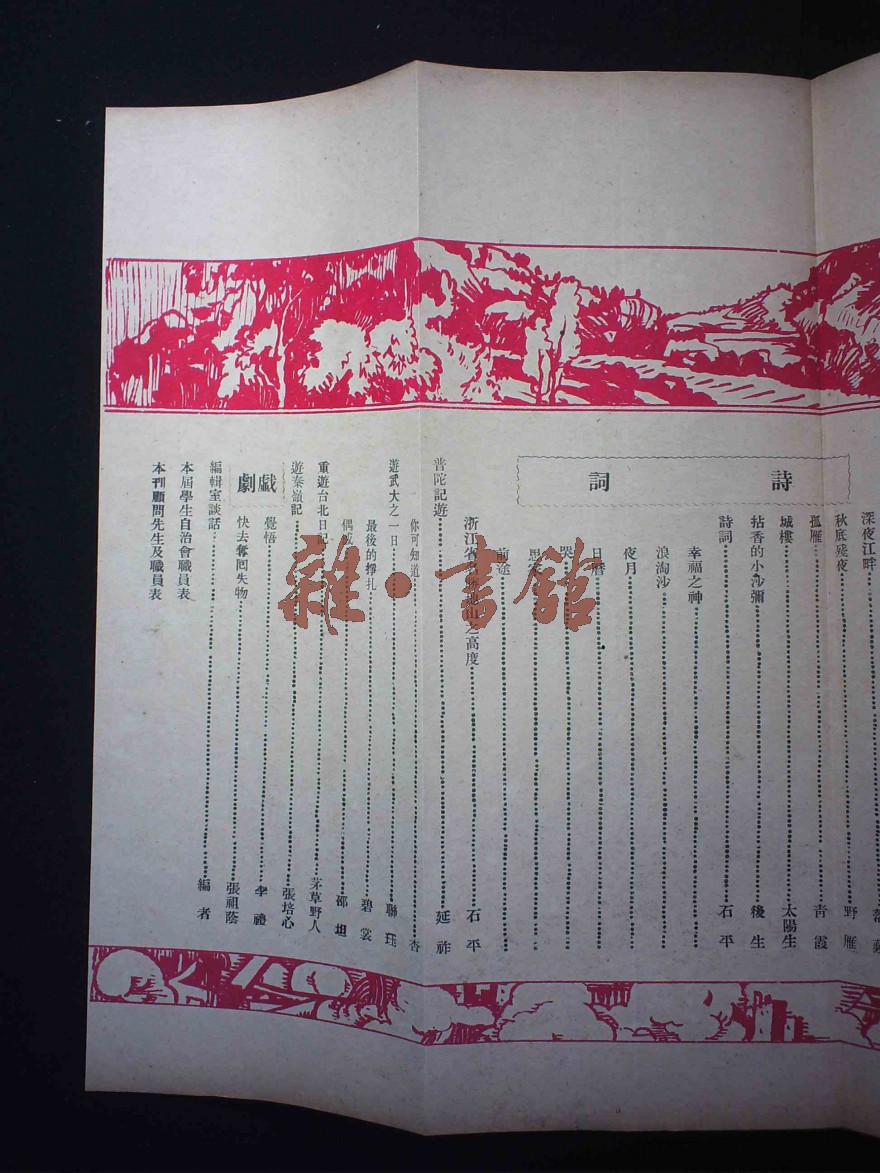 深夜江畔
秋底殘夜 野雁
孤雁 青霞
城樓 太陽生
拈香的小沙彌 後生
詩詞 石平
幸福之神
浪淘沙
夜月
日曆
哭
思家
前途
詩詞
浙江省 山之高度 石平
普陀記遊 延祚
你可知道 杏
遊武大之一日 聯珏
最後的掙扎 碧裳
偶感 邵坦
重遊台北日記 茅草野人
遊秦嶺記 張培心
戲劇
覺悟 李禮
快去奪回失物 張祖蔭
編輯室談話 編者
本屆學生自治會職員表
本刊顧問先生及職員表
雜·書館